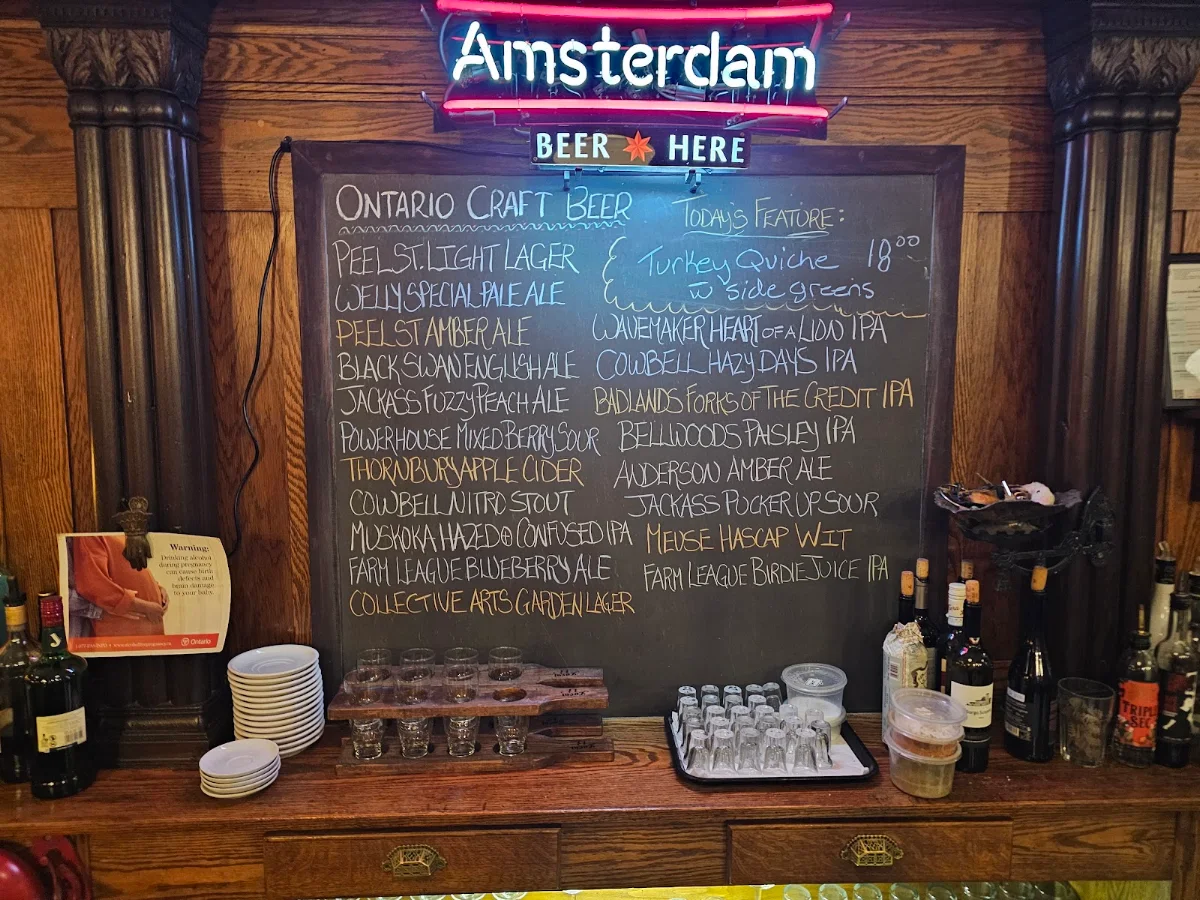 Amsterdam
BEER HERE
ONTARIO CRAFT BEER
PEEL ST. LIGHT LAGER
WELLY SPECIAL PALE ALE
PEEL ST AMBER ALE
BLACK SWAN ENGLISH ALE
JACKASS FUZZY PEACH ALE
POWERHOUSE MIXED BERRY SOUR
THORNBURY APPLE CIDER
COWBELL NITRO STOUT
MUSKOKA HAZED & CONFUSED IPA
FARM LEAGUE BLUEBERRY ALE
COLLECTIVE ARTS GARDEN LAGER
TODAY'S FEATURE:
Turkey Quiche 18.00
w side greens
WAVEMAKER HEART OF A LION IPA
COWBELL HAZY DAYS IPA
BADLANDS FORKS OF THE CREDIT IPA
BELLWOODS PAISLEY IPA
ANDERSON AMBER ALE
JACKASS PUCKER UP SOUR
MEUSE HASCAP WIT
FARM LEAGUE BIRDIE JUICE IPA
Warning:
Drinking alcohol
during pregnancy
can cause birth
defects and
brain damage
to your baby.
Ontario
TRIPLE
SEC